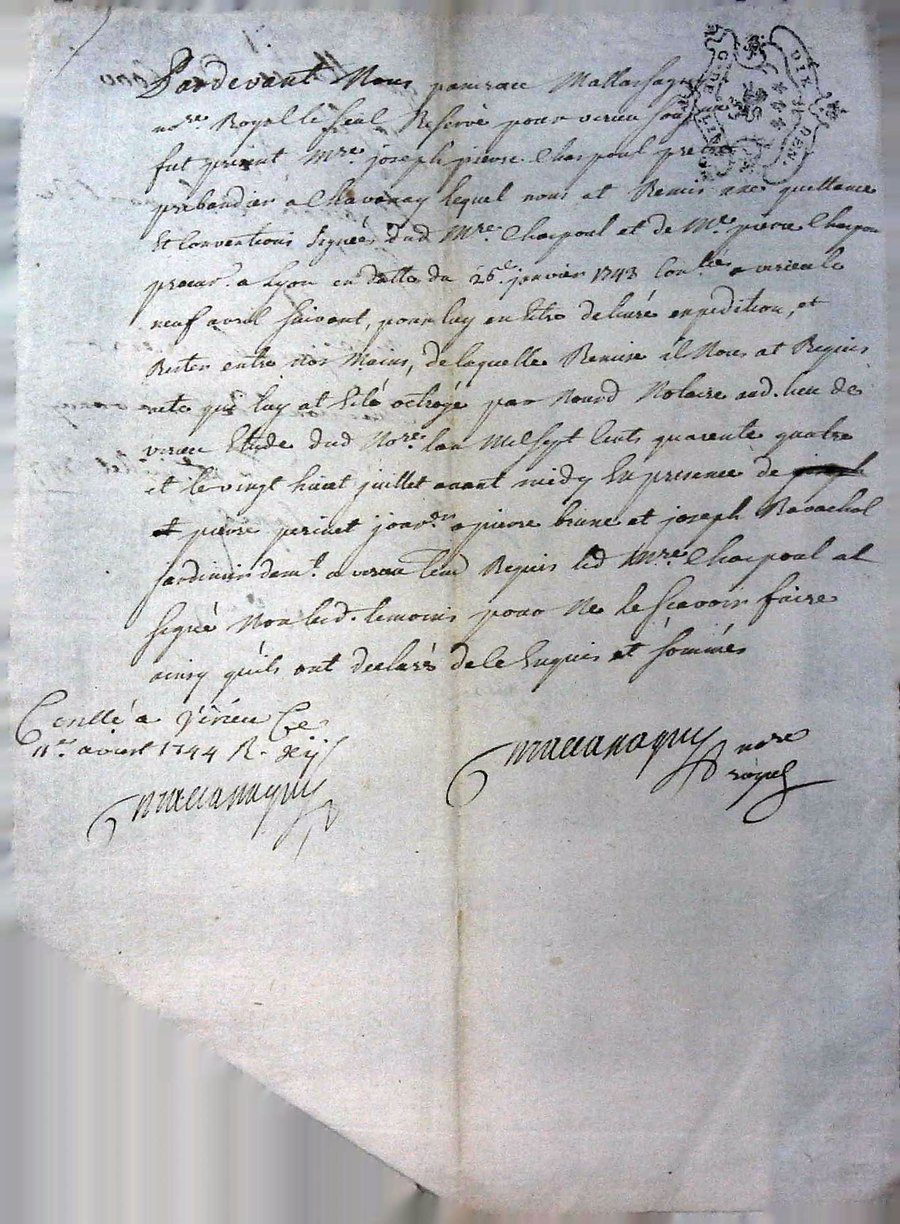 Pardevant Nous
no.re Royal le seul Reservé pour virieu sous
fut present M.re joseph pierre Charpoul pre
prebandier a Chavanay lequel nous at Remis une quittance
et Conventions signées dud M.re Charpoul et de M.e pierre Charpoul
procur.r a Lyon en datte du 26.e janvier 1743 Con.lée a virieu le
neuf avril suivant, pour luy en etre delivré expedition, et
Rester entre nos mains, de laquelle Remise il Nous at Requis
acte qui luy at eté octroyé par Nousd Notaire aud. lieu de
virieu Etude dud No.re l'an Mil sept Cents quarente quatre
et le vingt huit juillet avant midy En presence de
et pierre perinet et joseph Ravachol
jardinier dem.t a virieu Requis led M.re Charpoul at
signé Non lesd. temoins pour Ne le sçavoir faire
ainsy qu'ils ont declaré de le Enquis et sommés
Conllé a Virieu Ce
11.e 1744 R.
no.re
royal